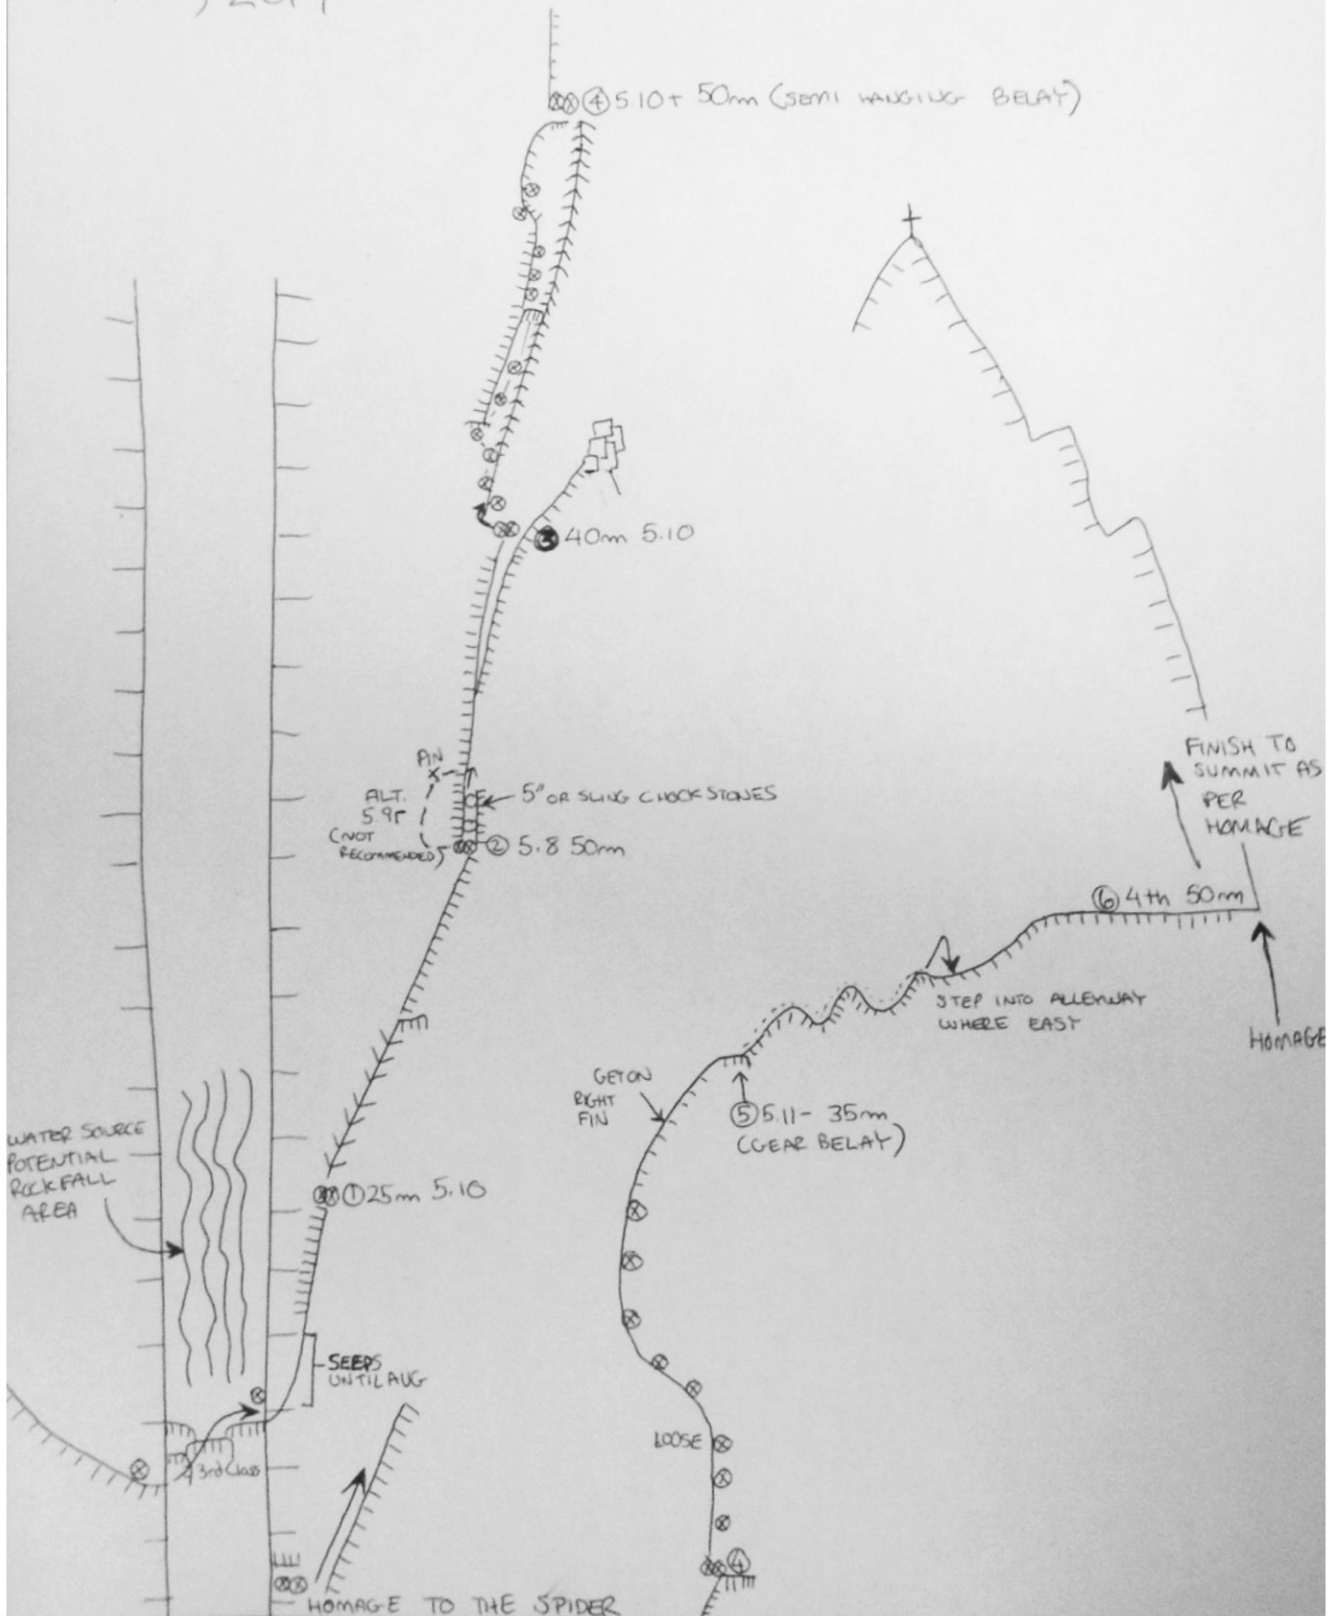 ④ 5.10+ 50m (SEMI HANGING BELAY)
③ 40m 5.10
PIN
5" OR SLING CHOCKSTONES
ALT.
(NOT
RECOMMENDED)
② 5.8 50m
FINISH TO
SUMMIT AS
PER
HOMAGE
⑥ 4th 50m
STEP INTO ALLEYWAY
WHERE EASY
HOMAGE
GET ON
RIGHT
FIN
⑤ 5.11- 35m
(GEAR BELAY)
WATER SOURCE
POTENTIAL
ROCKFALL
AREA
① 25m 5.10
SEEPS
UNTIL AUG
LOOSE
3rd Class
④
HOMAGE TO THE SPIDER